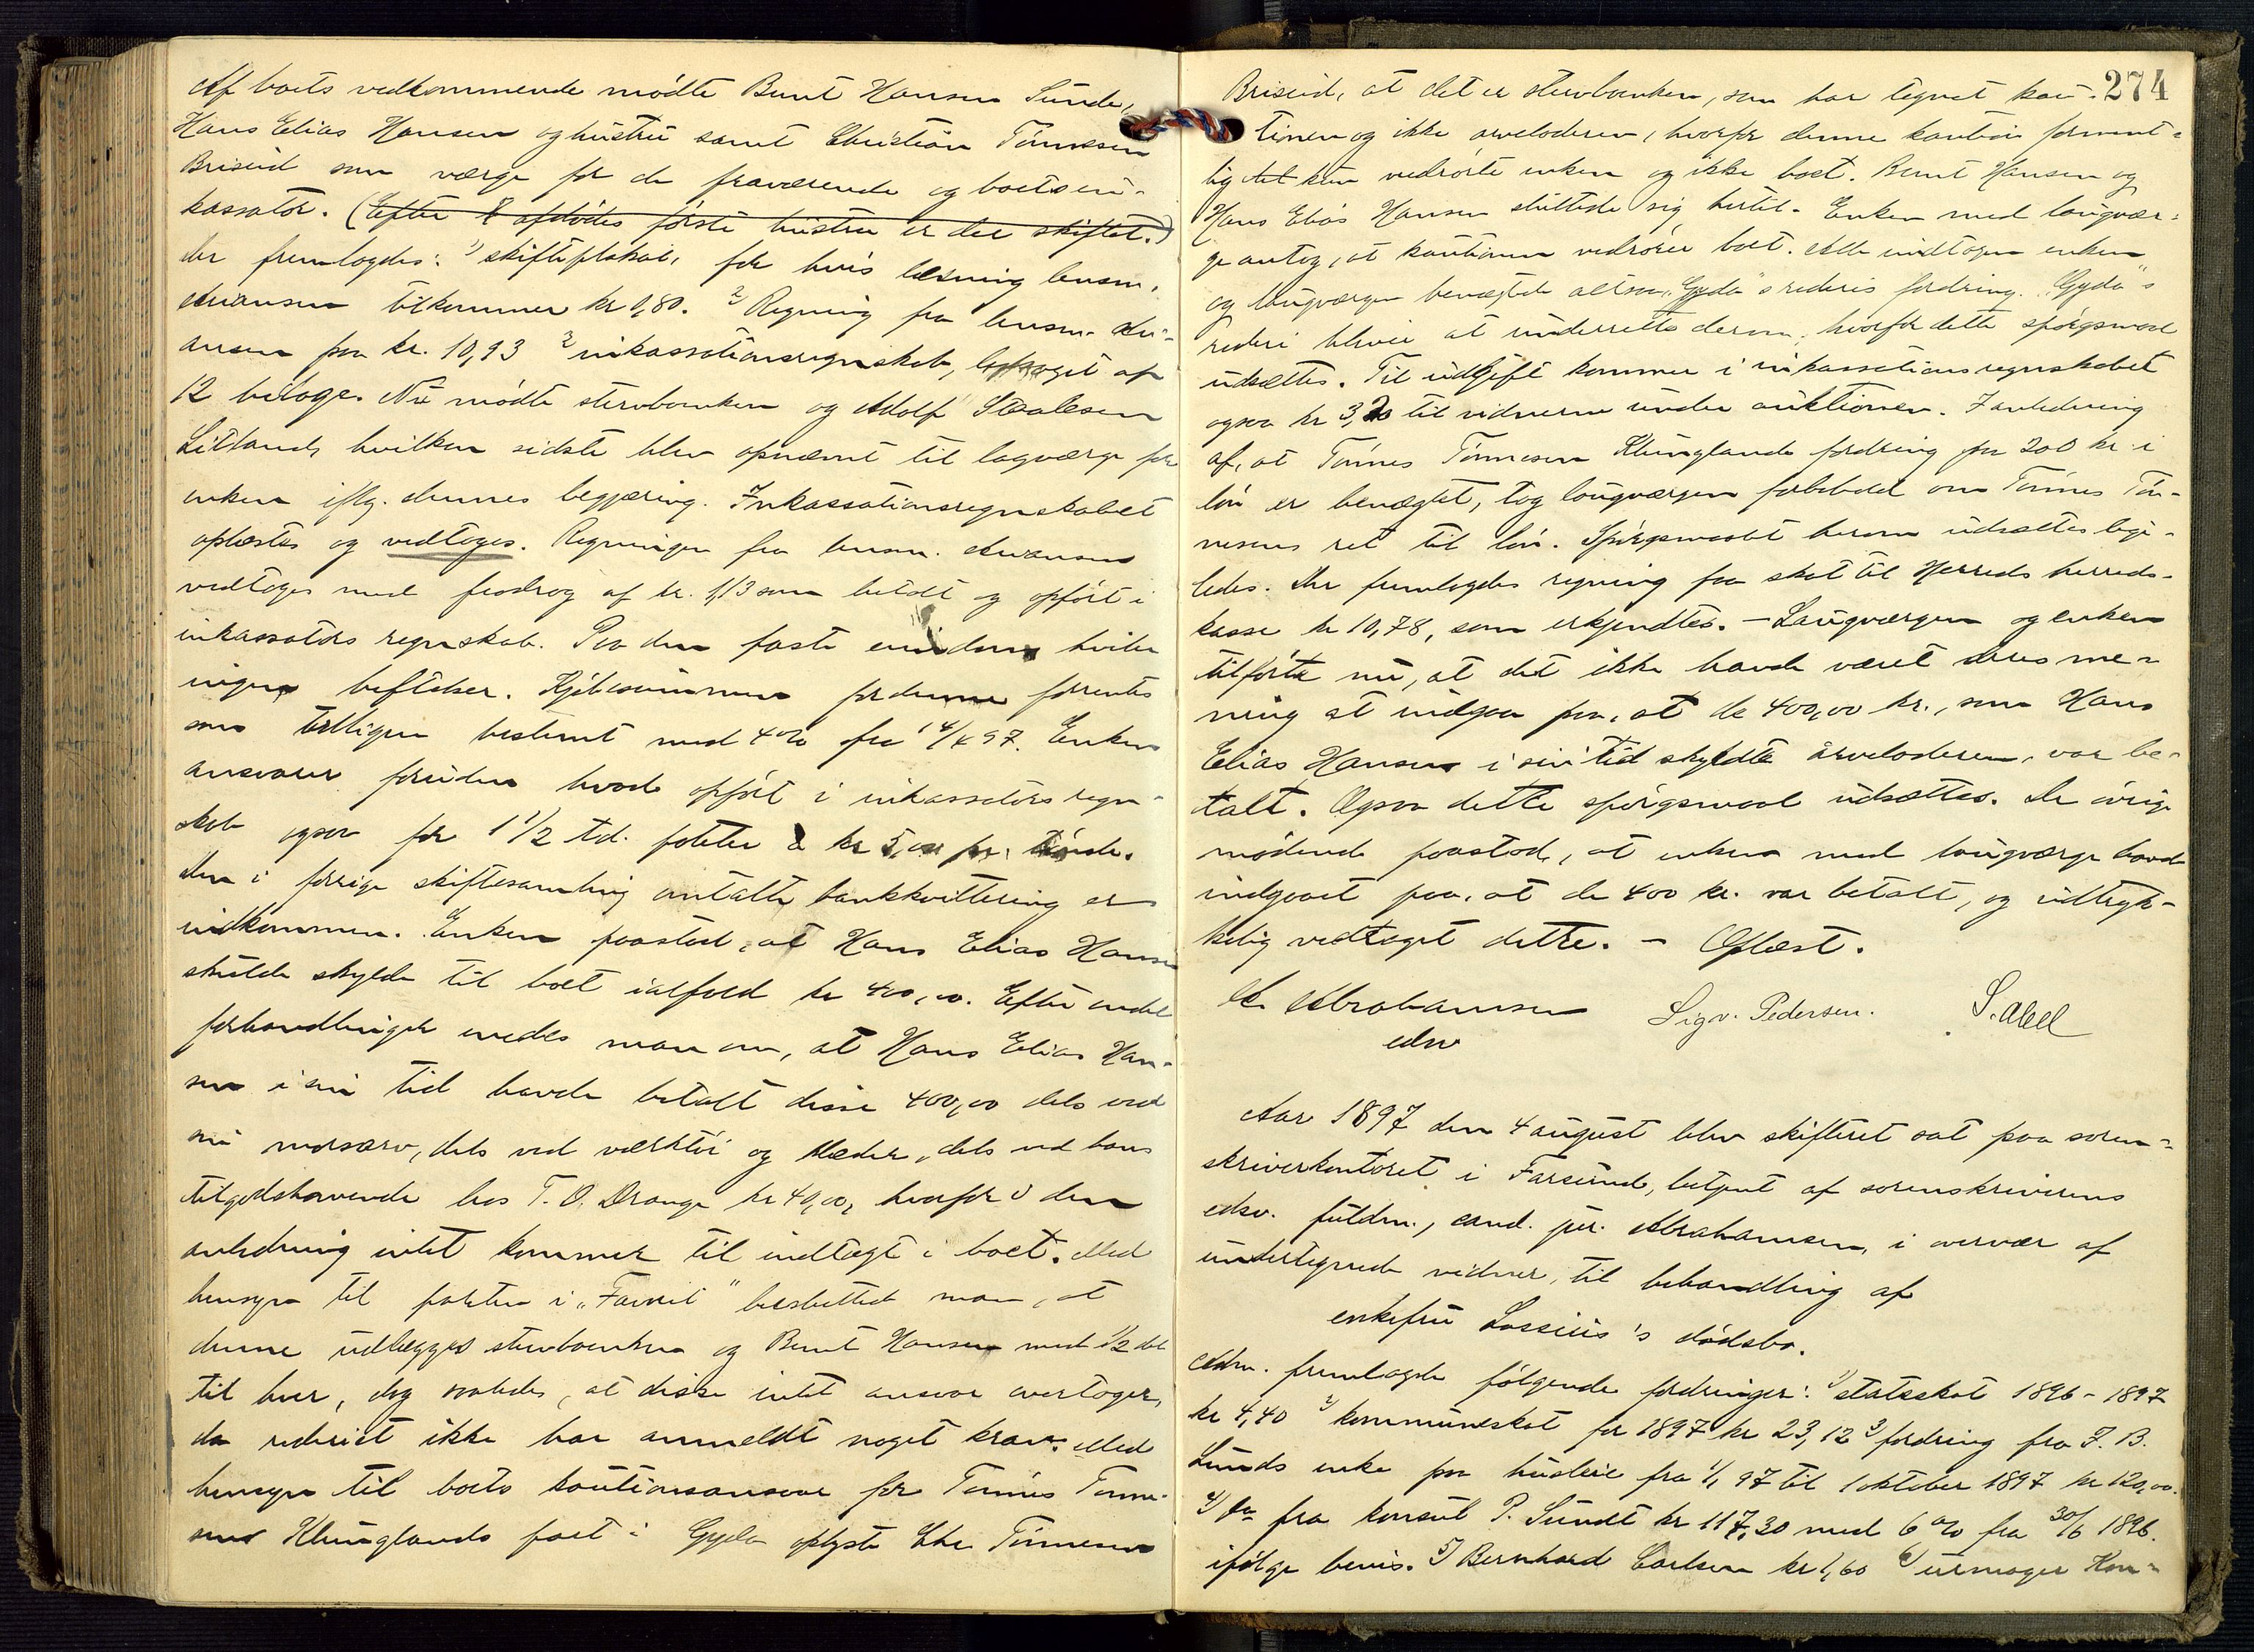 Af boets vedkommende mødte Bernt Hansen Sunde,
Hans Elias Hansen og hustru samt Christian Tønnessen
Briseid som værge for de fraværende og boets in-
kassator. (Efter afdødes første hustru er der skiftet.)
Der fremlagdes: 1) skifteplakat, for hvis læsning lensm.
Avansen tilkommer kr 0,80. 2) Regning fra lensm. Av-
ansen paa kr. 10,93 3) inkassationsregnskab, ledsaget af
12 bilage. Nu mødte stervboenken og Adolf Staalesen
Litland, hvilken sidste blev opnævnt til lagværge for
enken iflg. dennes begjæring. Inkassationsregnskabet
oplæstes og vedtoges. Regningen fra lensm. Avansen
vedtoges med fradrag af kr. 1,13 som betalt og opført i
inkassators regnskab. Paa den faste eiendom hviler
ingen heftelser. Kjøbesummen for denne forrentes
som tidligere bestemt med 4% fra 14/4 97. Enken
ansvarer foruden hvad opført i inkassators regn-
skab ogsaa for 1 1/2 td. poteter à kr 5,00 pr. tønde.
Den i forrige skiftesamling omtalte bankkvittering er
indkommen. Enken paastod, at Hans Elias Hansen
skulde skylde til boet ialfald kr 400,00. Efter endel
forhandlinger enedes man om, at Hans Elias Han-
sen i sin tid havde betalt disse 400,00 dels ved
sin morsarv, dels ved værktøi og klæder, dels ved hans
tilgodehavende hos T. O. Drange kr 40,00, hvorfor i den
anledning intet kommer til indtægt i boet. Med
hensyn til parten i "Favorit" besluttede man, at
denne udlægges stervboenken og Bernt Hansen med 1/2 del
til hver, dog saaledes, at disse intet ansvar overtager,
da rederiet ikke har anmeldt noget krav. Med
hensyn til boets kautionsansvar for Tønnes Tønne-
sens Klunglands part i Gyda oplyste Chr. Tønnesen
274
Briseid, at det er stervboenken, som har tegnet kau-
tionen og ikke arveladeren, hvorfor denne kaution forment-
lig kun vedrørte enken og ikke boet. Bernt Hansen og
Hans Elias Hansen sluttede sig hertil. Enken med laugvær-
ge antog, at kautionen vedrører boet. Alle undtagen enken
og laugværgen benægtede altsaa "Gyda"s rederis fordring. "Gyda"s
rederi bliver at underrette derom, hvorfor dette spørgsmaal
udsættes. Til udgift kommer i inkassationsregnskabet
ogsaa kr 3,20 til vidnerne under auktionen. I anledning
af, at Tønnes Tønnesen Klunglands fordring paa 200 kr i
løn er benægtet, tog laugværgen forbehold om Tønnes Tøn-
nesens ret til løn. Spørgsmaalet herom udsættes lige-
ledes. Der fremlagdes regning fra skat til Herreds herreds-
kasse kr 10,78, som erkjendtes. – Laugværgen og enken
tilførte nu, at det ikke havde været deres me-
ning at indgaa paa, at de 400,00 kr., som Hans
Elias Hansen i sin tid skyldte arveladeren, var be-
talt. Ogsaa dette spørgsmaal udsættes. De øvrige
mødende paastod, at enken med laugværge havde
indgaaet paa, at de 400 kr. var betalt, og udtryk-
kelig vedtaget dette. – Oplæst.
A. Abrahamsen Sigv. Pedersen. S. Abel
edsv
Aar 1897 den 4 august blev skifteret sat paa soren-
skriverkontoret i Farsund, betjent af sorenskriverens
edsv. fuldm., cand. jur. Abrahamsen, i overvær af
undertegnede vidner, til behandling af
enkefru Lossius's dødsbo.
Adm. fremlagde følgende fordringer: 1) statsskat 1896 - 1897
kr 4,40 2) kommuneskat for 1897 kr 23,12 3) fordring fra J. B.
Lunds enke paa husleie fra 1/1 97 til 1 oktober 1897 kr 120,00.
4) do fra konsul P. Sundt kr 117,30 med 6% fra 30/6 1896.
ifølge bevis. 5) Bernhard Carlsen kr 1,60 6) urmager Kon-